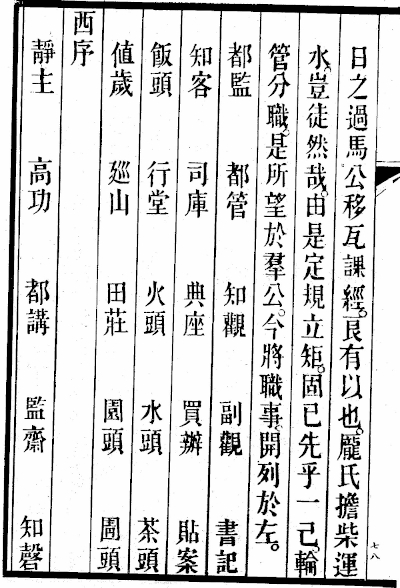 日之過馬公移瓦課經。良有以也。龐氏擔柴運
水。豈徒然哉。由是定規立矩。固已先乎一己。輪
管分職。是所望於羣公。今將職事。開列於左。
都監 都管 知觀 副觀 書記
知客 司庫 典座 買辦 貼案
飯頭 行堂 火頭 水頭 茶頭
値歲 廵山 田莊 園頭 圊頭
西序
靜主 高功 都講 監齋 知磬
七八